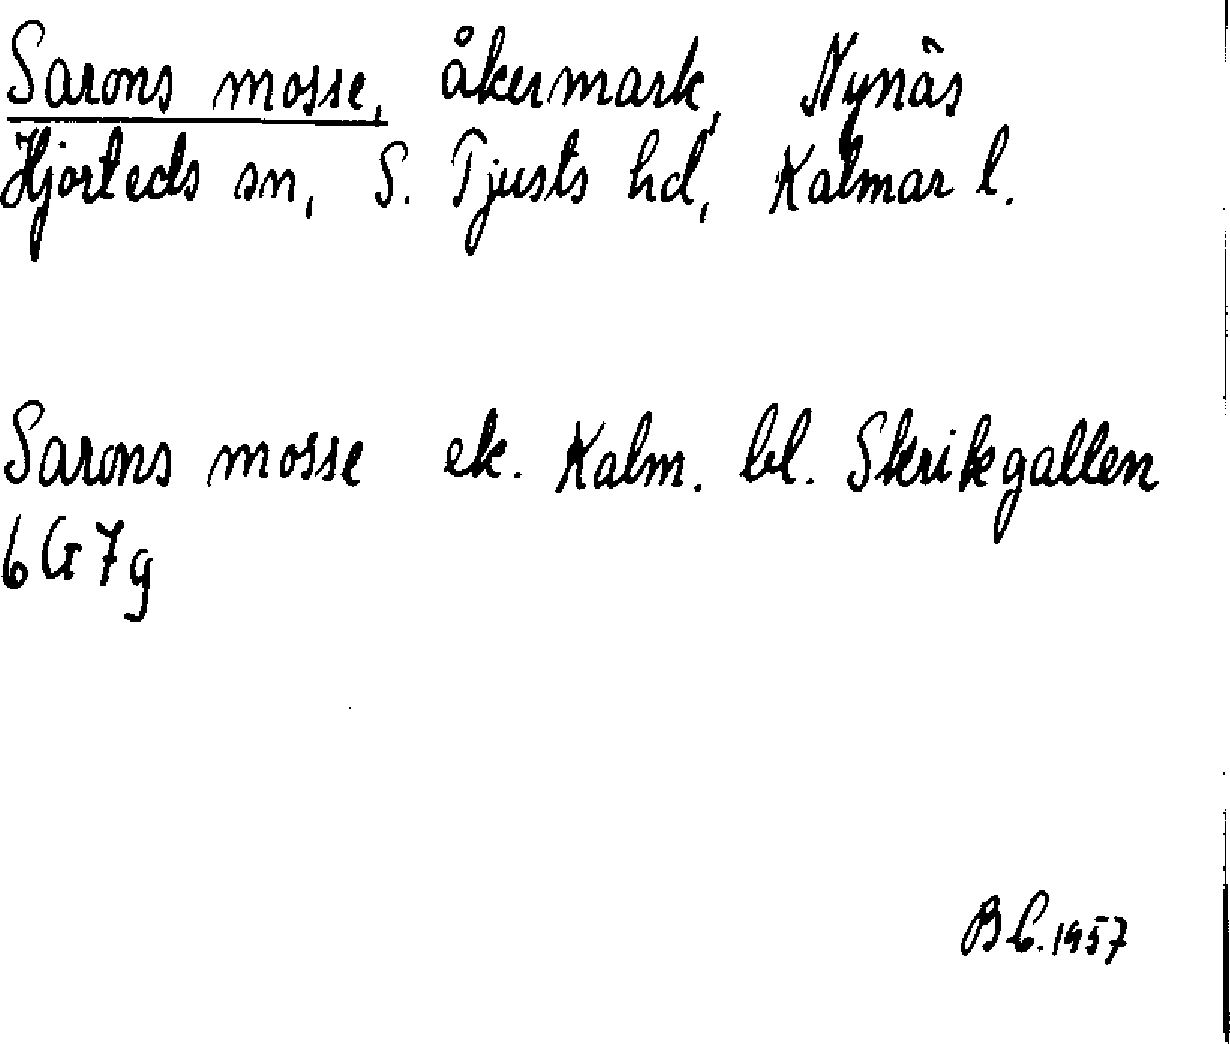 Sarons mosse, åkermark, Nynäs
Hjorteds sn, S. Tjusts hd, Kalmar l.
Sarons mosse ek. Kalm. bl. Skrikgallen
6G7g
B C. 1957